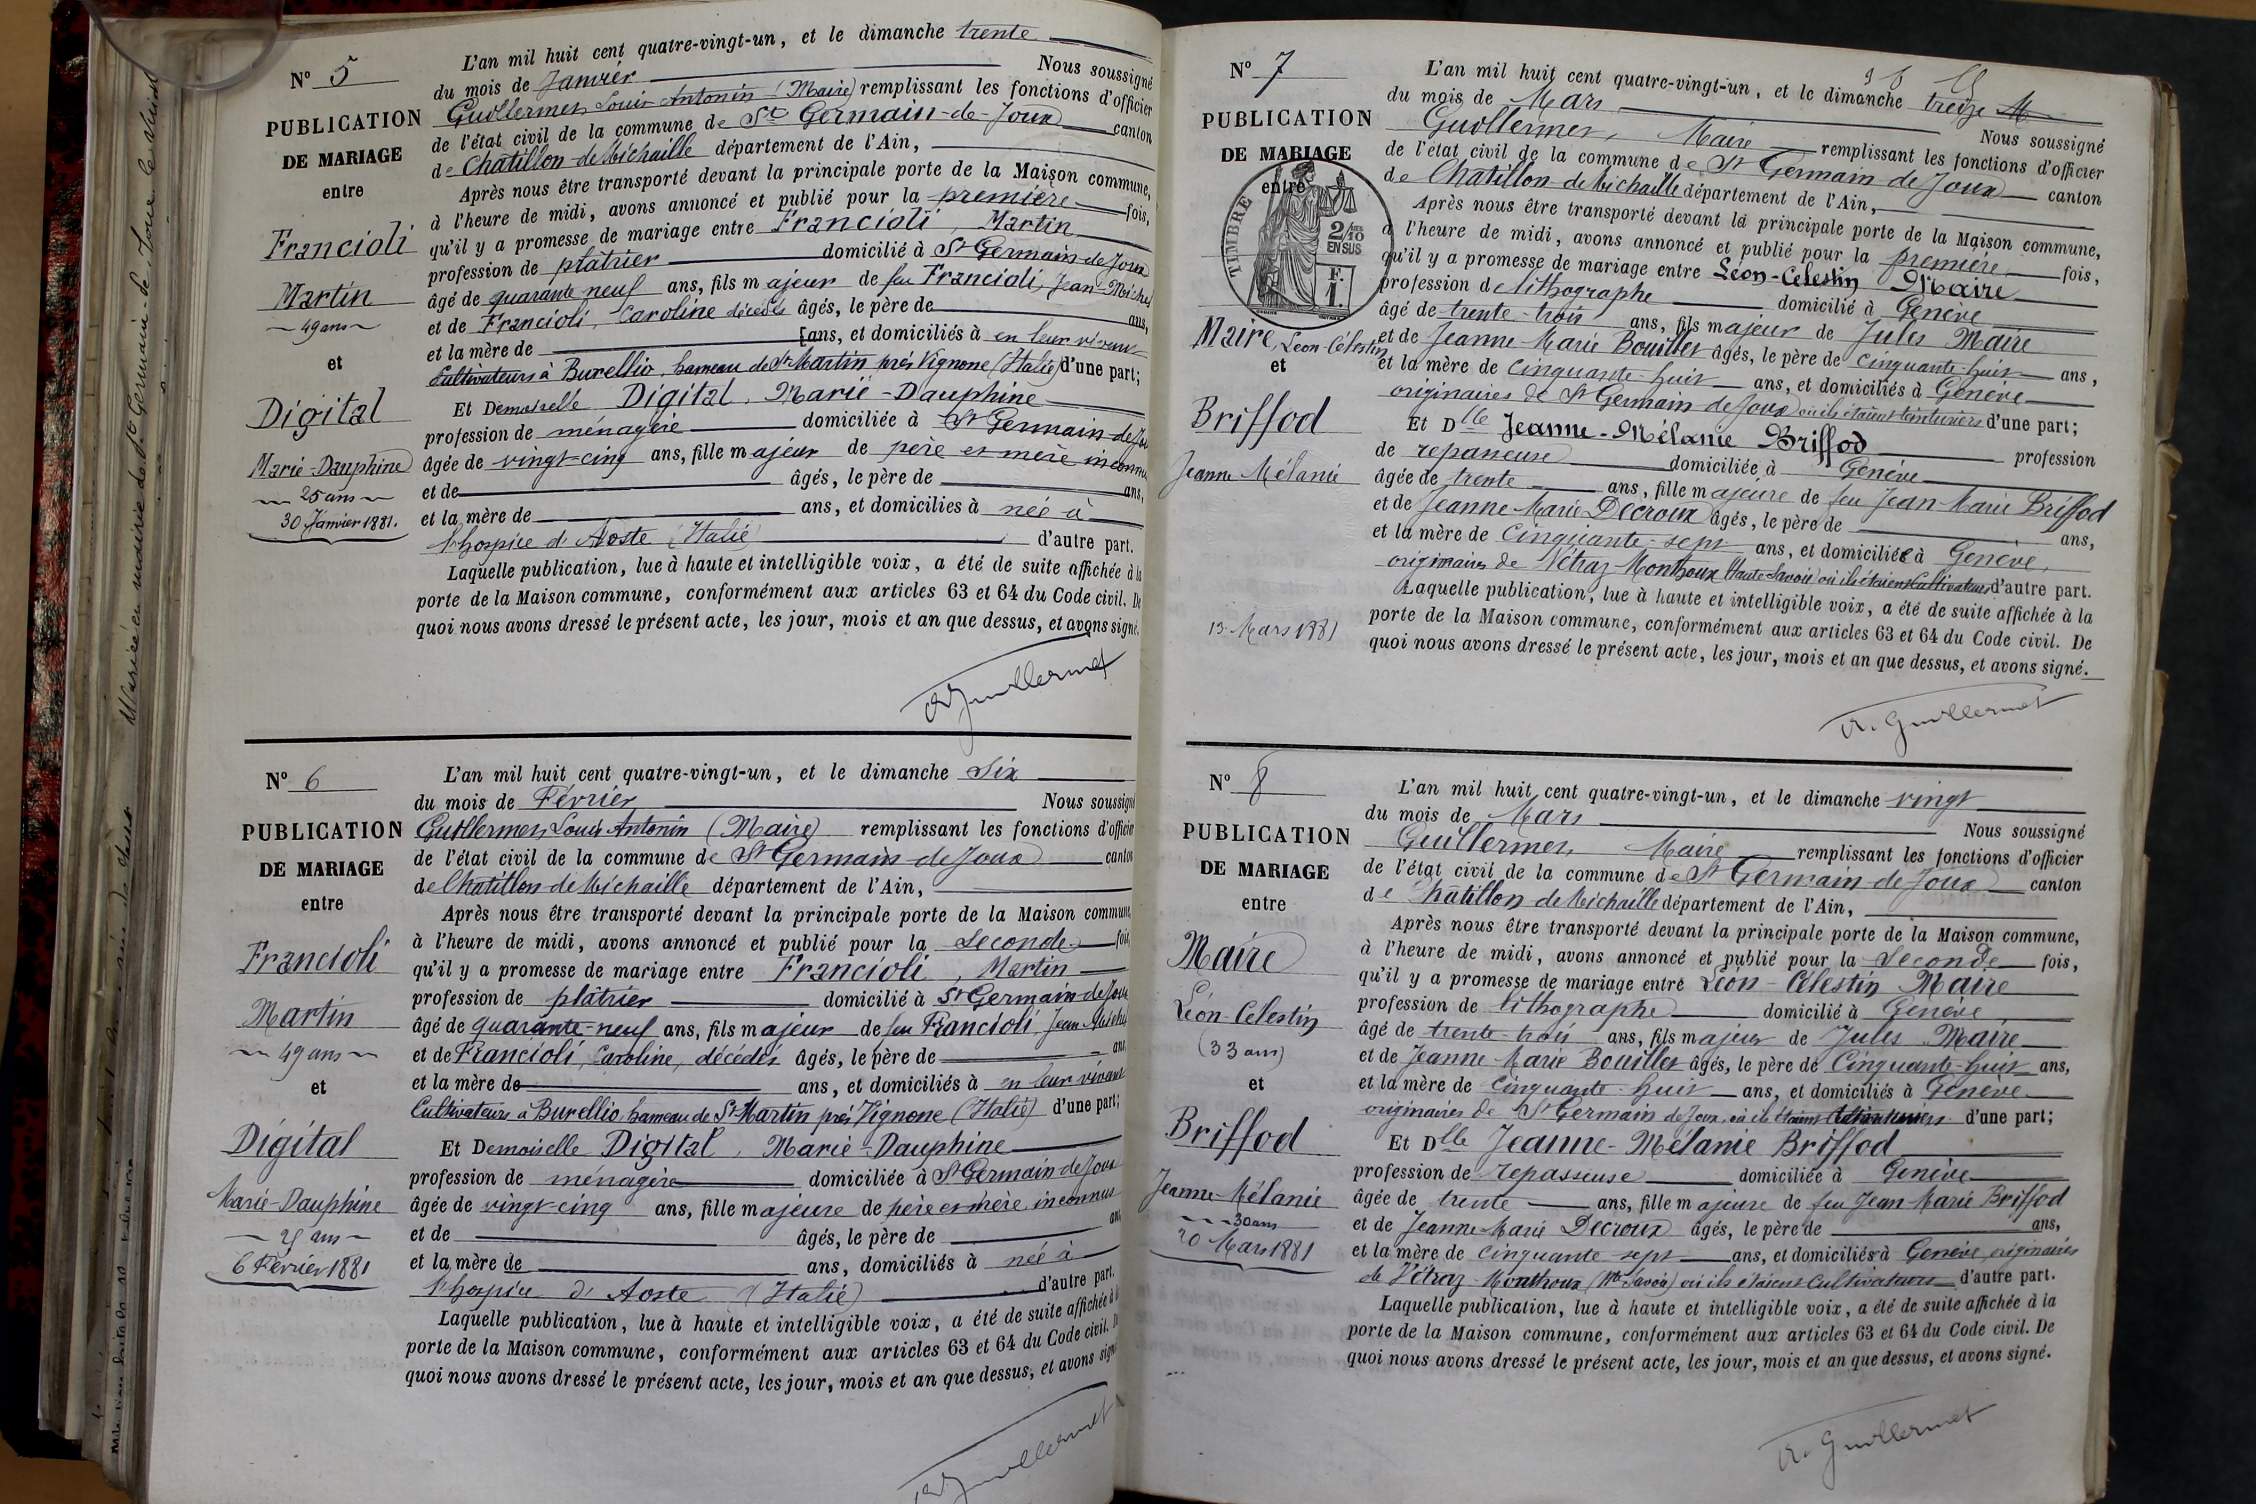 N° 5
PUBLICATION
DE MARIAGE
entre
Francioli
Martin
49 ans
et
Digital
Marie-Dauphine
25 ans
30 Janvier 1881.
L'an mil huit cent quatre-vingt-un, et le dimanche trente
du mois de Janvier Nous soussigné
Guillermet Louis Antonin (Maire) remplissant les fonctions d'officier
de l'état civil de la commune de St Germain-de-Joux canton
de Chatillon-de-Michaille département de l'Ain,
Après nous être transporté devant la principale porte de la Maison commune,
à l'heure de midi, avons annoncé et publié pour la première fois,
qu'il y a promesse de mariage entre Francioli, Martin
profession de plâtrier domicilié à St Germain-de-Joux
âgé de quarante neuf ans, fils majeur de feu Francioli, Jean-Michel
et de Francioli, Caroline décédés âgés, le père de ans,
et la mère de ans, et domiciliés à en leur vivant
Cultivateurs à Burellio, hameau de St Martin près Vignone (Italie) d'une part;
Et Demoiselle Digital, Marie-Dauphine
profession de ménagère domiciliée à St Germain-de-Joux
âgée de vingt-cinq ans, fille majeur de père et mère inconnus
et de âgés, le père de ans,
et la mère de ans, et domiciliés à née à
l'hospice d'Aoste (Italie) d'autre part.
Laquelle publication, lue à haute et intelligible voix, a été de suite affichée à la
porte de la Maison commune, conformément aux articles 63 et 64 du Code civil. De
quoi nous avons dressé le présent acte, les jour, mois et an que dessus, et avons signé.
Guillermet
N° 6
PUBLICATION
DE MARIAGE
entre
Francioli
Martin
49 ans
et
Digital
Marie-Dauphine
25 ans
6 Février 1881
L'an mil huit cent quatre-vingt-un, et le dimanche six
du mois de Février Nous soussigné
Guillermet Louis Antonin (Maire) remplissant les fonctions d'officier
de l'état civil de la commune de St Germain-de-Joux canton
de Chatillon de Michaille département de l'Ain,
Après nous être transporté devant la principale porte de la Maison commune,
à l'heure de midi, avons annoncé et publié pour la seconde fois,
qu'il y a promesse de mariage entre Francioli, Martin
profession de plâtrier domicilié à St Germain de Joux
âgé de quarante-neuf ans, fils majeur de feu Francioli Jean Michel
et de Francioli, Caroline, décédés âgés, le père de ans
et la mère de ans, et domiciliés à en leur vivant
Cultivateurs à Burellio hameau de St Martin près Vignone (Italie) d'une part;
Et Demoiselle Digital, Marie-Dauphine
profession de ménagère domiciliée à St Germain de Joux
âgée de vingt-cinq ans, fille majeure de père et mère inconnus
et de âgés, le père de ans
et la mère de ans, domiciliés à née à
l'hospice d'Aoste (Italie) d'autre part.
Laquelle publication, lue à haute et intelligible voix, a été de suite affichée à la
porte de la Maison commune, conformément aux articles 63 et 64 du Code civil. De
quoi nous avons dressé le présent acte, les jour, mois et an que dessus, et avons signé
Guillermet
N° 7
PUBLICATION
DE MARIAGE
entre
TIMBRE
2/10
EN SUS
F.
1.
Maire, Léon-Célestin
et
Briffod
Jeanne Mélanie
13 Mars 1881
L'an mil huit cent quatre-vingt-un, et le dimanche treize
du mois de Mars Nous soussigné
Guillermet, Maire remplissant les fonctions d'officier
de l'état civil de la commune de St Germain de Joux canton
de Chatillon de Michaille département de l'Ain,
Après nous être transporté devant la principale porte de la Maison commune,
à l'heure de midi, avons annoncé et publié pour la première fois,
qu'il y a promesse de mariage entre Léon-Célestin Maire
profession de lithographe domicilié à Genève
âgé de trente-trois ans, fils majeur de Jules Maire
et de Jeanne Marie Bouiller âgés, le père de cinquante-huit ans,
et la mère de cinquante-huit ans, et domiciliés à Genève
originaires de St Germain de Joux où ils étaient teinturiers d'une part;
Et Dlle Jeanne-Mélanie Briffod profession
de repasseuse domiciliée à Genève
âgée de trente ans, fille majeure de feu Jean-Marie Briffod
et de Jeanne Marie Decroux âgés, le père de ans,
et la mère de cinquante-sept ans, et domiciliée à Genève,
originaires de Vétraz Monthoux Haute Savoie où ils étaient Cultivateurs d'autre part.
Laquelle publication, lue à haute et intelligible voix, a été de suite affichée à la
porte de la Maison commune, conformément aux articles 63 et 64 du Code civil. De
quoi nous avons dressé le présent acte, les jour, mois et an que dessus, et avons signé.
Guillermet
N° 8
PUBLICATION
DE MARIAGE
entre
Maire
Léon-Célestin
(33 ans)
et
Briffod
Jeanne-Mélanie
30 ans
20 Mars 1881
L'an mil huit cent quatre-vingt-un, et le dimanche vingt
du mois de Mars Nous soussigné
Guillermet, Maire remplissant les fonctions d'officier
de l'état civil de la commune de St Germain de Joux canton
de Chatillon de Michaille département de l'Ain,
Après nous être transporté devant la principale porte de la Maison commune,
à l'heure de midi, avons annoncé et publié pour la seconde fois,
qu'il y a promesse de mariage entre Léon-Célestin Maire
profession de lithographe domicilié à Genève
âgé de trente-trois ans, fils majeur de Jules Maire
et de Jeanne Marie Bouiller âgés, le père de Cinquante-huit ans,
et la mère de cinquante-huit ans, et domiciliés à Genève
originaires de St Germain de Joux, où ils étaient d'une part;
Et Dlle Jeanne-Mélanie Briffod
profession de repasseuse domiciliée à Genève
âgée de trente ans, fille majeure de feu Jean Marie Briffod
et de Jeanne Marie Decroux âgés, le père de ans,
et la mère de cinquante sept ans, et domiciliés à Genève, originaires
de Vétraz-Monthoux (Hte Savoie) où ils étaient Cultivateurs d'autre part.
Laquelle publication, lue à haute et intelligible voix, a été de suite affichée à la
porte de la Maison commune, conformément aux articles 63 et 64 du Code civil. De
quoi nous avons dressé le présent acte, les jour, mois et an que dessus, et avons signé.
Guillermet